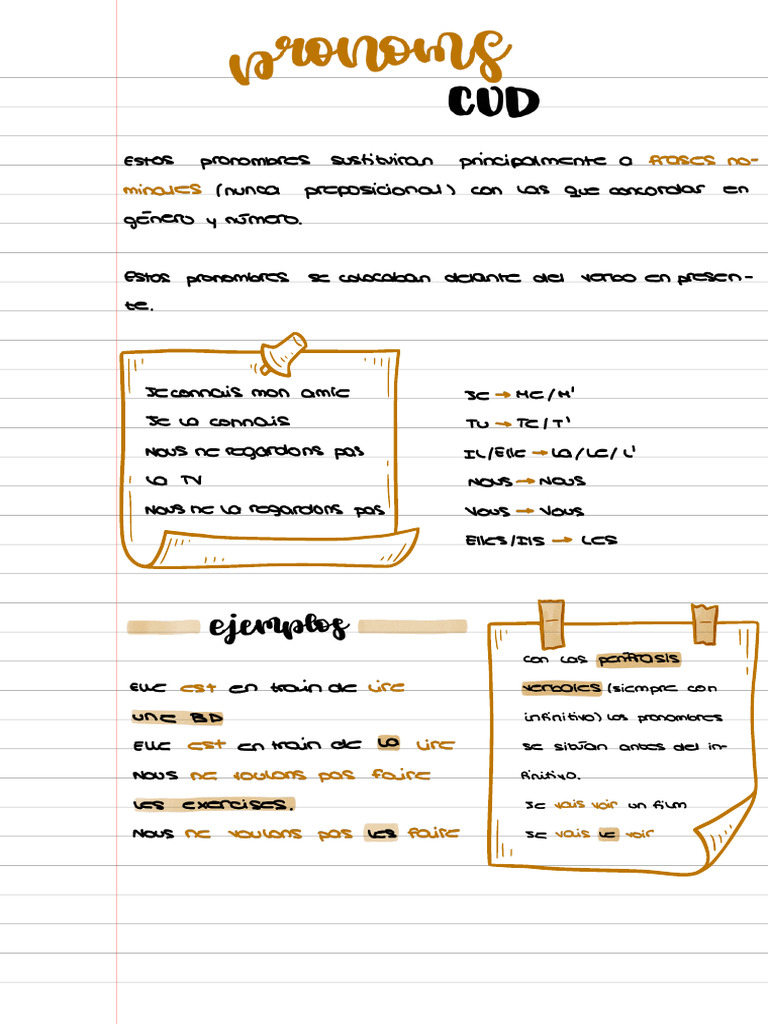 pronoms
COD
Estos pronombres sustituiran principalmente a frases no-
minales (nunca preposicional) con las que concordar en
género y número.
Estos pronombres se colocaban delante del verbo en presen-
te.
Je connais mon amie
Je la connais
Nous ne regardons pas
la TV
Nous ne la regardons pas
Je → Me / M'
Tu → Te / T'
Il/Elle → La / Le / L'
Nous → Nous
Vous → Vous
Elles/Ils → Les
ejemplos
Elle est en train de lire
une BD
Elle est en train de la lire
Nous ne voulons pas faire
les exercises.
Nous ne voulons pas les faire
con las perífrosis
verbales (siempre con
infinitivo) los pronombres
se sitúan antes del in-
finitivo.
Je vais voir un film
Je vais le voir